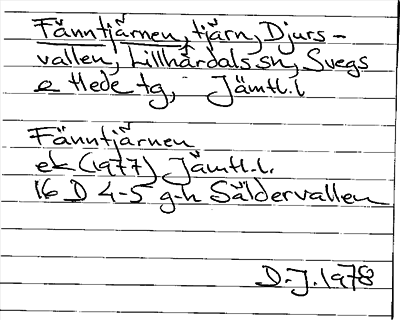 Fänntjärnen, tjärn, Djurs-
vallen, Lillhärdals sn, Svegs
o Hede tg, Jämtl.l
Fänntjärnen
ek (1977) Jämtl.l.
16 D 4-5 g-h Säldervallen
D.J. 1978